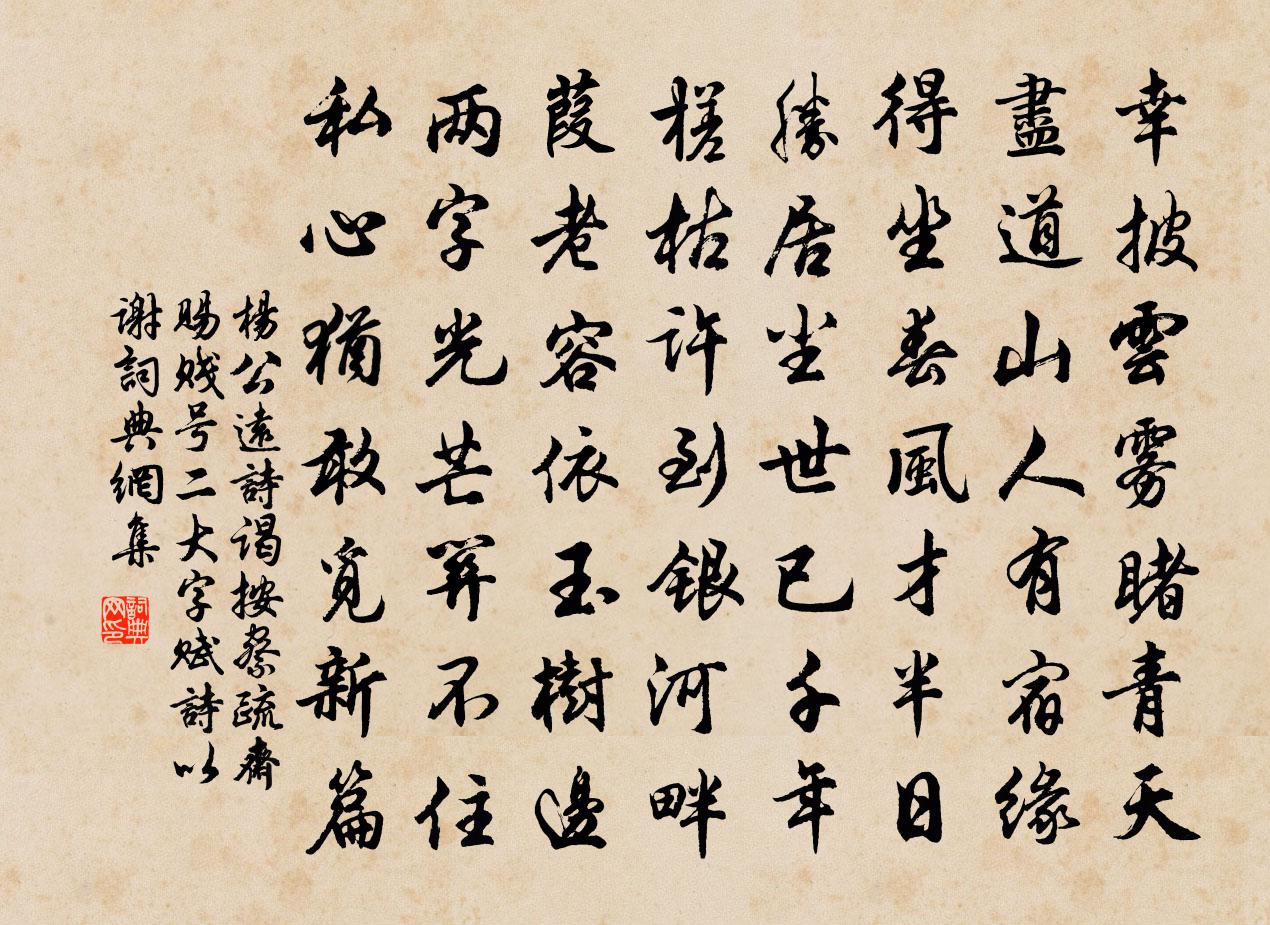 幸披雲雾睹青天
盡道山人有宿緣
得坐春風才半日
勝居尘世已千年
槎枯许到銀河畔
葭老容依玉樹邊
两字光芒羿不住
私心猶敢覓新篇
楊公遠詩谒按察疏齋
賜賤号二大字賦詩以
谢詞典網集
詞典网印